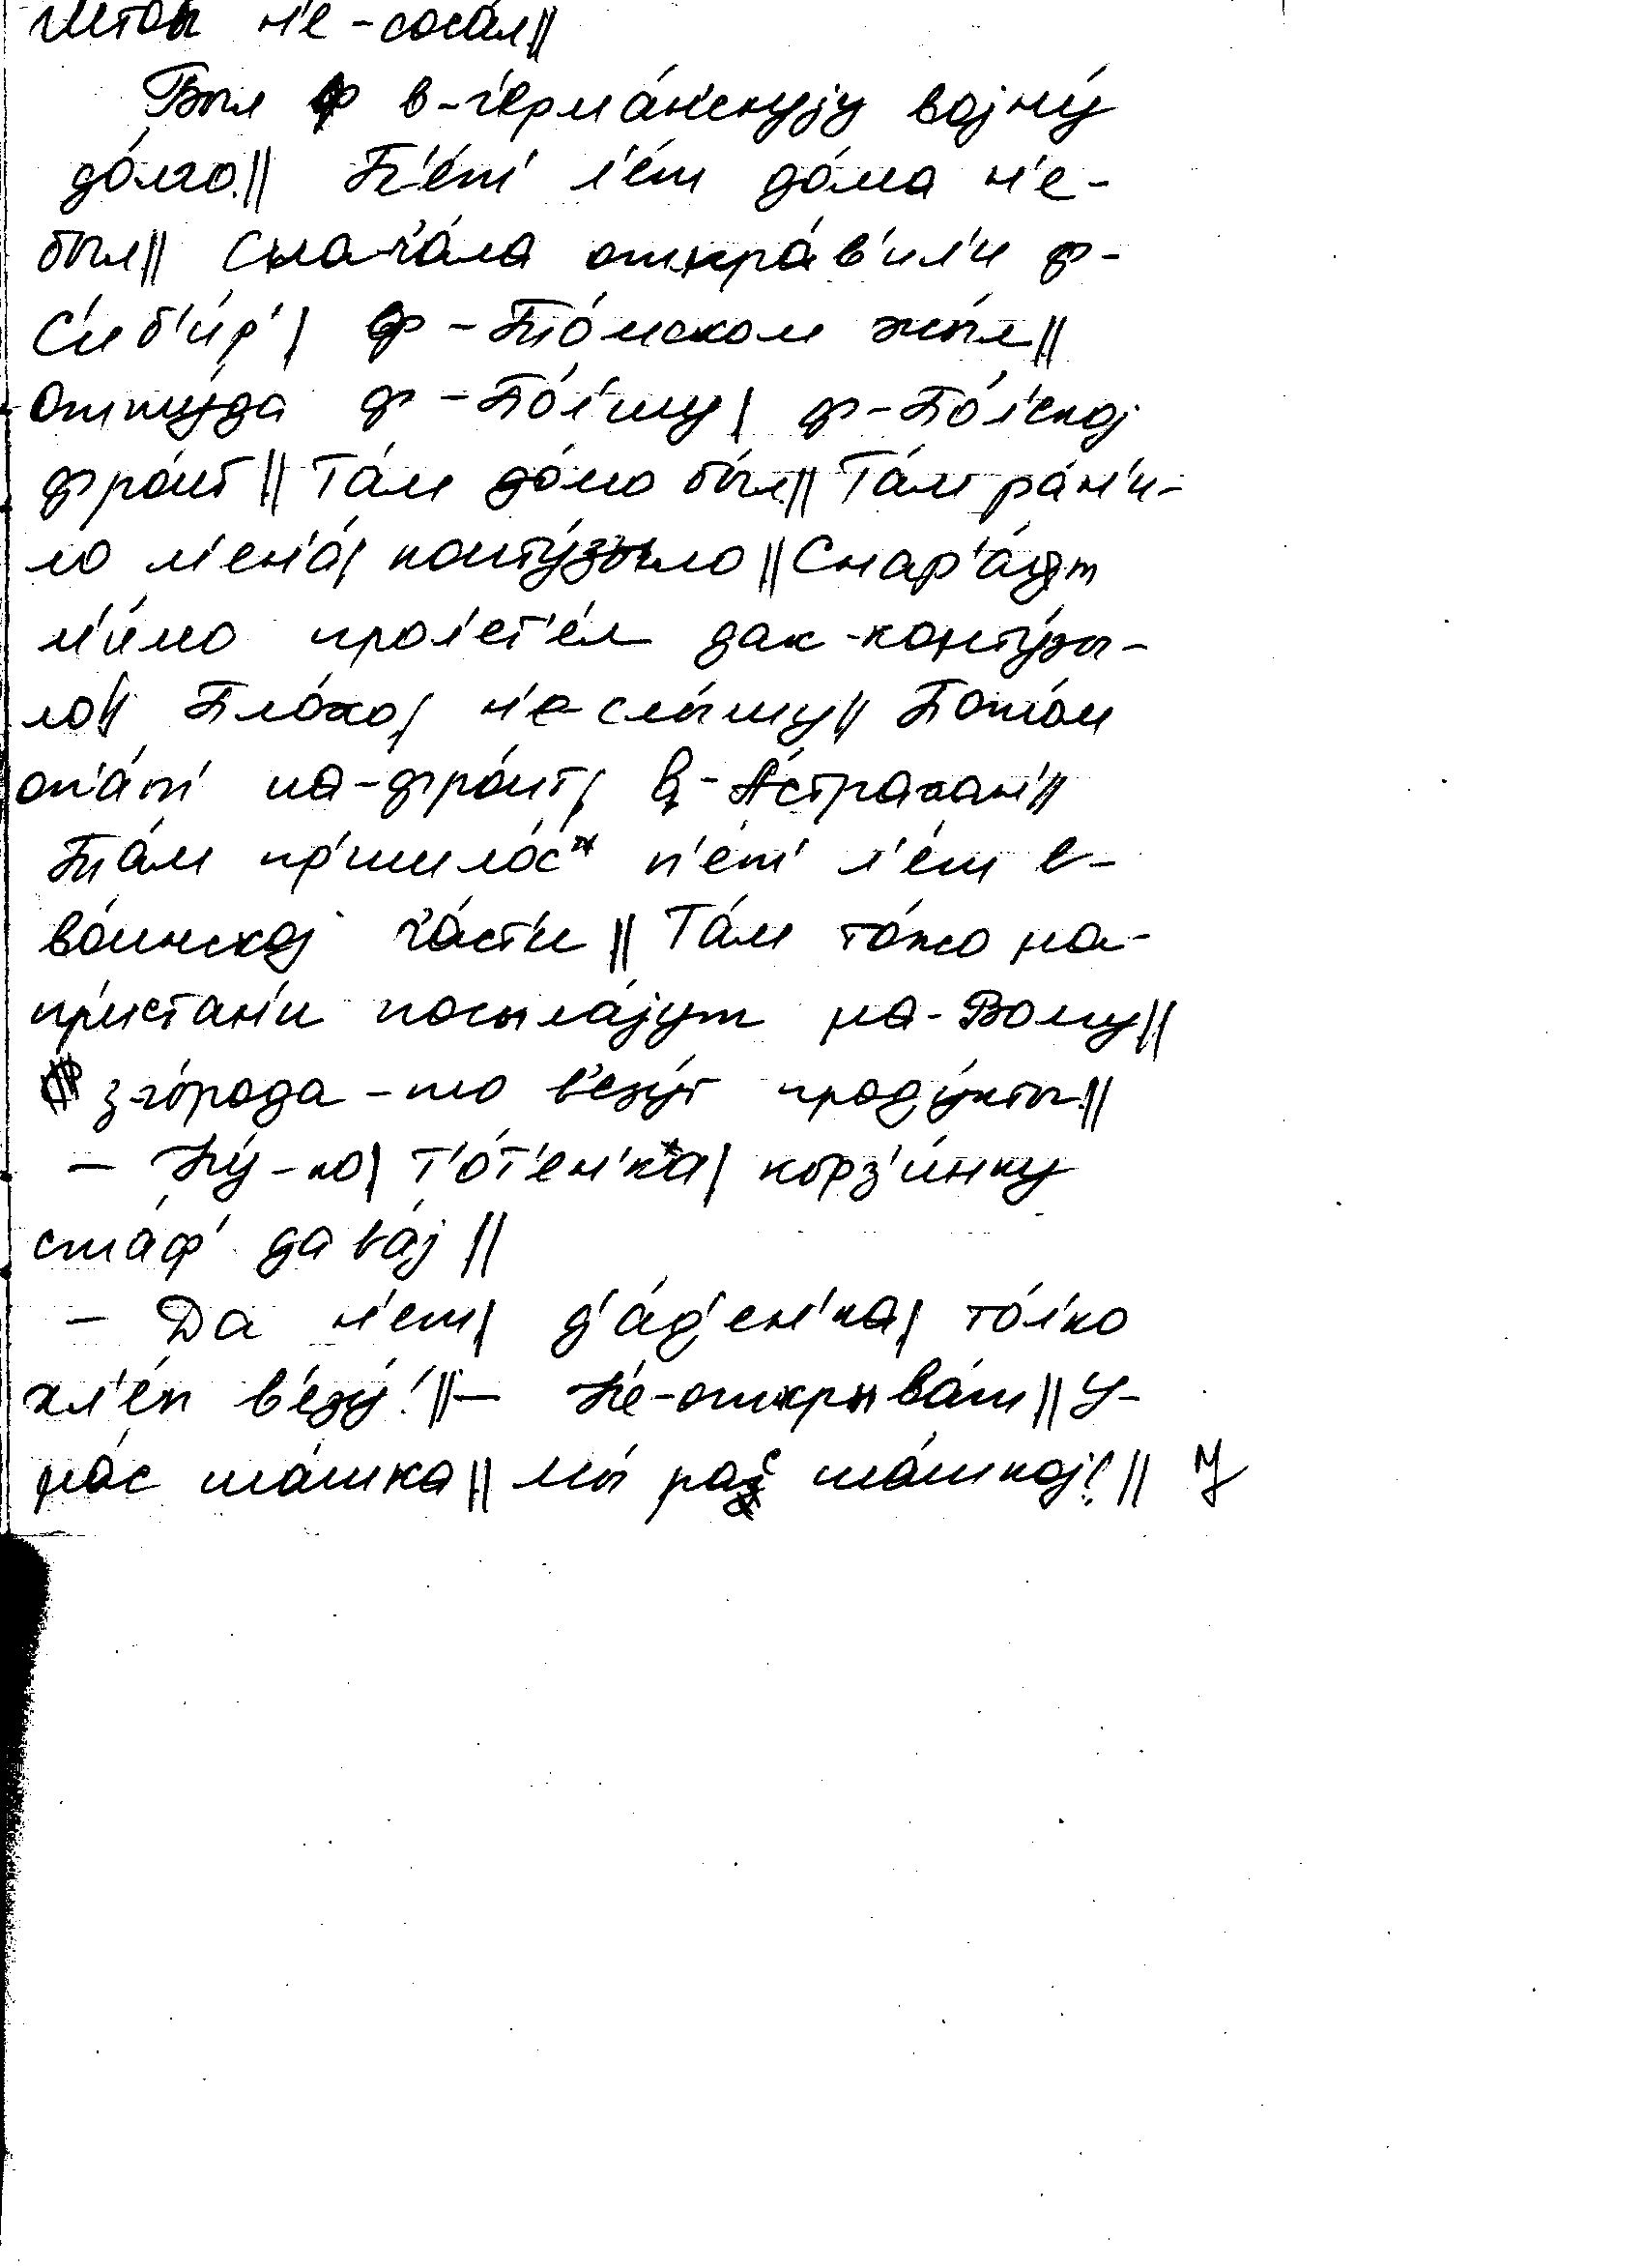 штоы н'е-соса́л||
Был в-г'ерма́н'скуjу воjну́
до́лго|| П'е́т' л'е́т до́ма н'е-
был|| Снача́ла отпра́в'ил'и ф-
С'иб'и́р'| ф-То́мском жы́л||
Отту́да ф-По́л'шу| ф-По́л'скоj
фро́нт|| Та́м до́мо бы́л|| Та́м ра́н'и-
ло м'ен'а́| конту́зыло|| Снар'а́т
м'и́мо прол'ет'е́л дак-конту́зы-
ло|| Пло́хо| н'е-слы́шу|| Пото́м
оп'а́т' на-фро́нт| в-А́страхан'||
Та́м пр'ишло́с' п'е́т' л'е́т в-
во́инскоj ч'а́ст'и|| Та́м то́жо на-
пр'истан'и посыла́jут на-Волгу||
з-го́рода-то в'езу́т проду́кты||
— Ну́-ко| т'о́т'ен'ка| корз'и́нку
ста́ф' дава́j||
— Да н'ет| д'а́д'ен'ка| то́л'ко
хл'е́п в'езу́!||— Не-открыва́т|| У-
на́с ша́шка|| Мы́ рас ша́шкоj!|| И